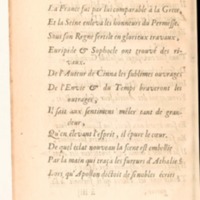 La France fut par lui comparable à la Grece,
Et la Seine enleva les honneurs du Permesse.
Sous son Regne fertile en glorieux travaux,
Euripide & Sophocle ont trouvé des ri-
vaux.
De l'Auteur de Cinna les sublimes ouvrages
De l'Envie & du Temps braveront les
outrages;
Il sait aux sentimens mêler tant de gran-
deur,
Qu'en élevant l'esprit, il épure le cœur.
De quel éclat nouveau la scene est embellie
Par la main qui traça les fureurs d'Athalie!
Lors, qu'Apollon dictoit de semblables écrits